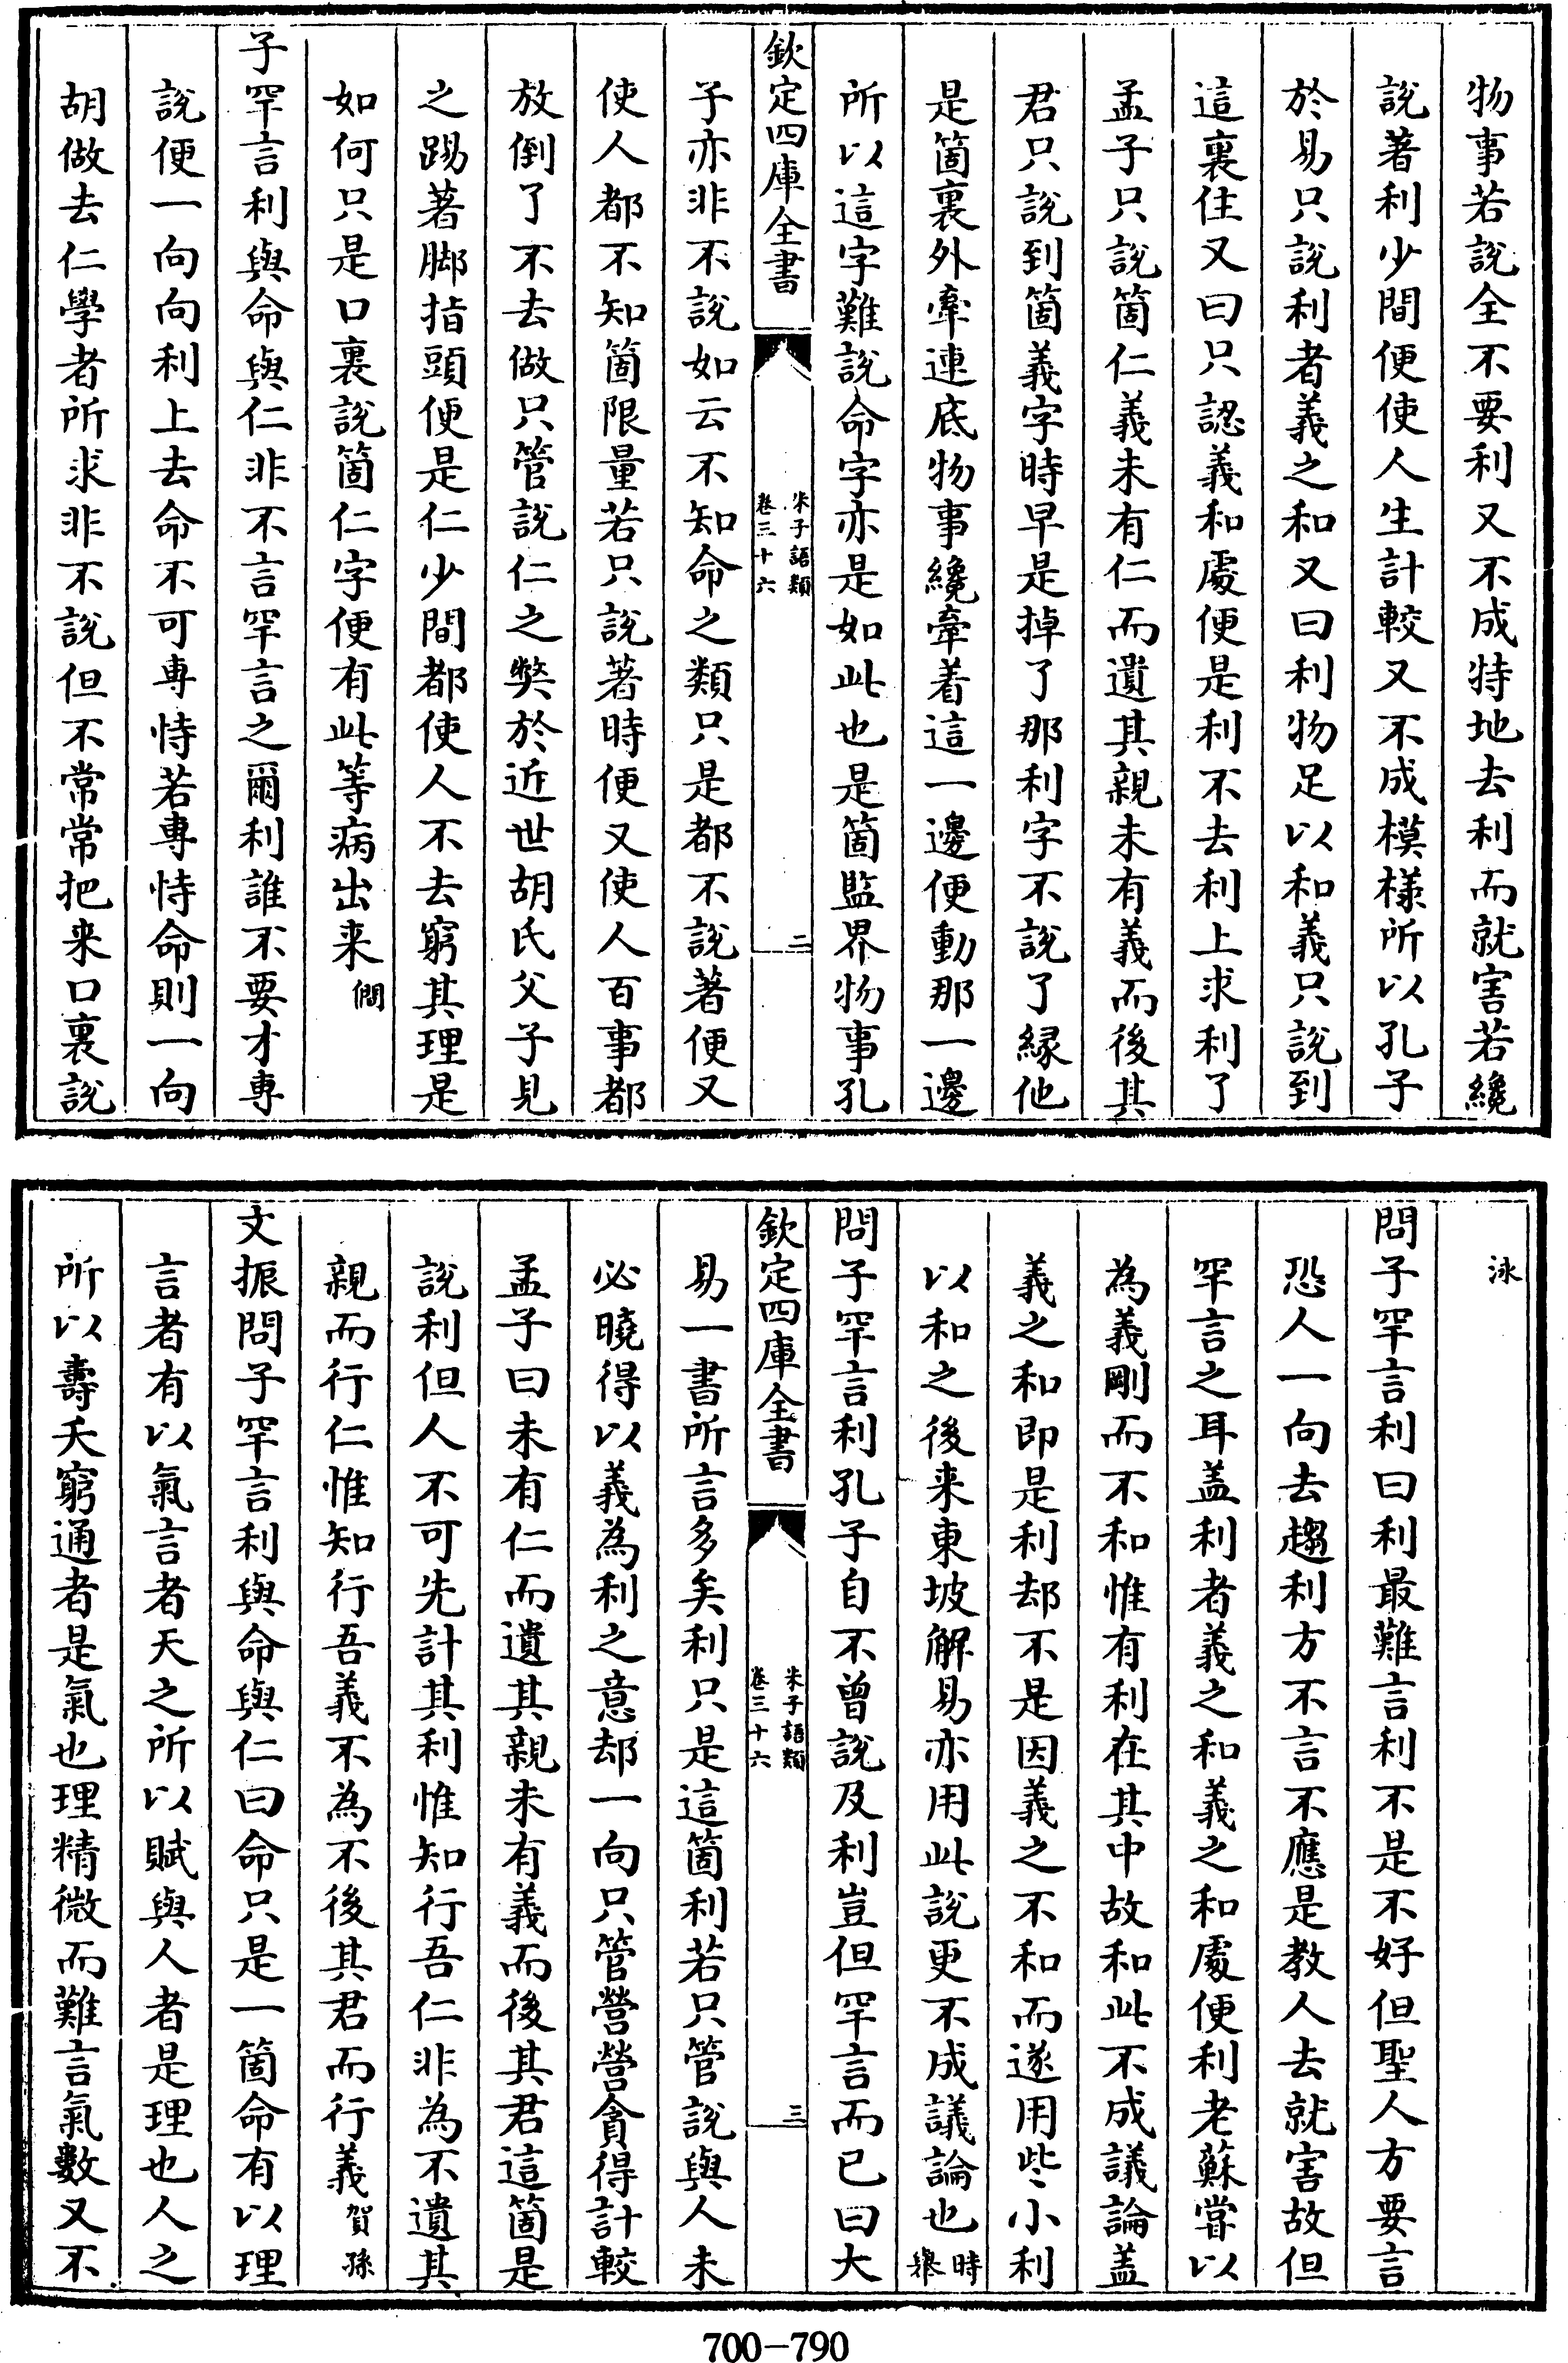 物事若說全不要利又不成特地去利而就害若纔
說著利少間便使人生計較又不成模樣所以孔子
於易只說利者義之和又曰利物足以和義只說到
這裏住又曰只認義和處便是利不去利上求利了
孟子只說箇仁義未有仁而遺其親未有義而後其
君只說到箇義字時早是掉了那利字不說了緣他
是箇裏外牽連底物事纔牽着這一邊便動那一邊
所以這字難說命字亦是如此也是箇監界物事孔
欽定四庫全書
朱子語類
卷三十六
二
子亦非不說如云不知命之類只是都不說著便又
使人都不知箇限量若只說著時便又使人百事都
放倒了不去做只管說仁之弊於近世胡氏父子見
之踢著脚指頭便是仁少間都使人不去窮其理是
如何只是口裏說箇仁字便有此等病出来僩
子罕言利與命與仁非不言罕言之爾利誰不要才專
說便一向向利上去命不可專恃若專恃命則一向
胡做去仁學者所求非不說但不常常把来口裏說
泳
問子罕言利曰利最難言利不是不好但聖人方要言
恐人一向去趨利方不言不應是教人去就害故但
罕言之耳盖利者義之和義之和處便利老蘇甞以
為義剛而不和惟有利在其中故和此不成議論盖
義之和即是利却不是因義之不和而遂用些小利
以和之後来東坡解易亦用此說更不成議論也時舉
問子罕言利孔子自不曾說及利豈但罕言而已曰大
欽定四庫全書
朱子語類
卷三十六
三
易一書所言多矣利只是這箇利若只管說與人未
必曉得以義為利之意却一向只管營營貪得計較
孟子曰未有仁而遺其親未有義而後其君這箇是
說利但人不可先計其利惟知行吾仁非為不遺其
親而行仁惟知行吾義不為不後其君而行義賀孫
文振問子罕言利與命與仁曰命只是一箇命有以理
言者有以氣言者天之所以賦與人者是理也人之
所以壽夭窮通者是氣也理精微而難言氣數又不
700-790